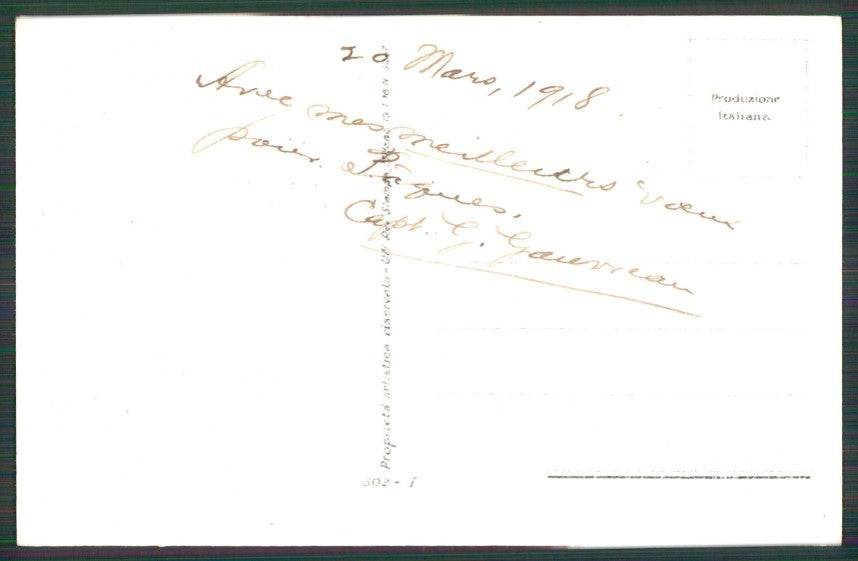 20 Mars, 1918.
Avec mes meilleurs vœux
pour Pâques,
Capt. G. Gauvreau
Produzione
Italiana
Proprietà artistica riservata -
302 - 1